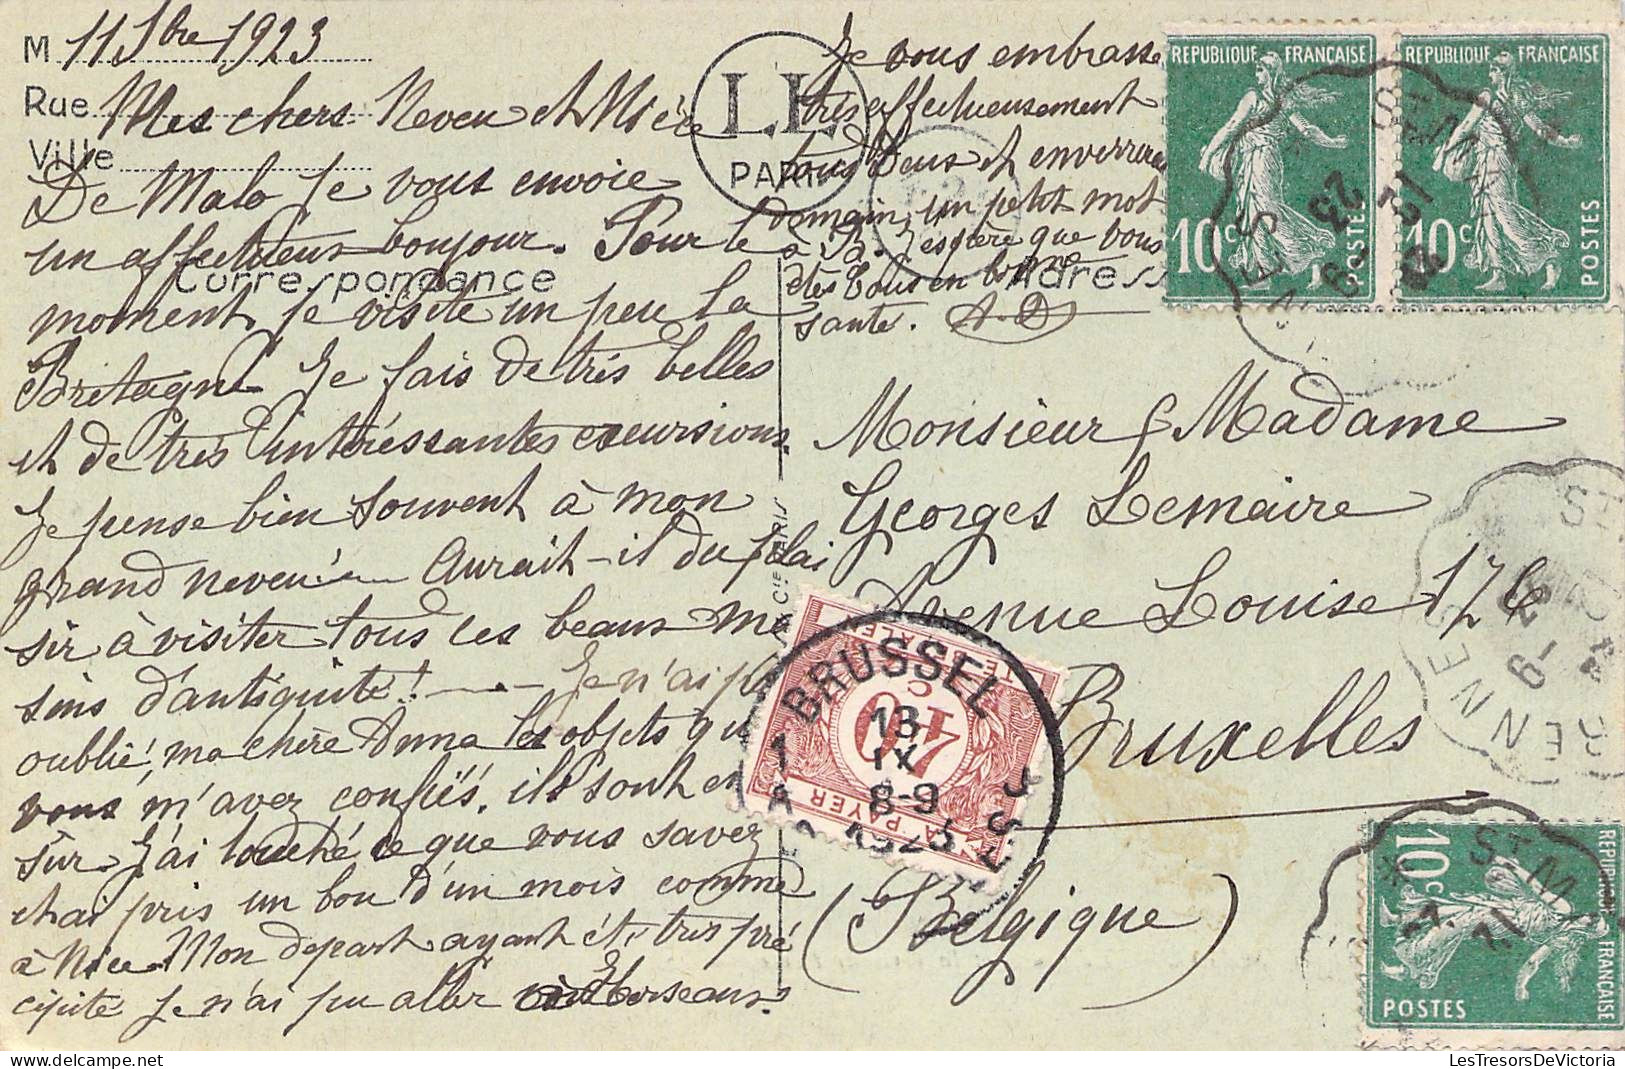 M 11 7bre 1923
Rue
Ville
Mes chers Neveu et Nièce
De Malo je vous envoie
un affectueux bonjour. Pour le
Correspondance
moment je visite un peu la
Bretagne Je fais de très belles
et de très intéressantes excursions.
Je pense bien souvent à mon
grand neveu! Aurait-il du plai
sir à visiter tous ces beaux ma
sins d'antiquité! Je n'ai pas
oublié, ma chère Anna les objets que
vous m'avez confiés, ils sont en
sûr. J'ai touché ce que vous savez
chai pris un bou d'un mois comme
à Nice. Mon depart ayant été très pré
cipité je n'ai pu aller
LL
PARIS
Je vous embrasse
très affectueusement
tous deux et enverrai
demain, un petit mot
à B. J'espère que vous
êtes tous en bonne
santé. A.D
Adresse
Monsieur & Madame
Georges Lemaire
Avenue Louise 176
Bruxelles
(Belgique)
REPUBLIQUE FRANÇAISE
10c
POSTES
REPUBLIQUE FRANÇAISE
10c
POSTES
REPUBLIQUE FRANÇAISE
10c
POSTES
ST MA
RENNES
12
-9
23
ST
RENNES
-9
23
ST M
12
TE BETALEN
40
C
A PAYER
1 BRUSSEL
13
IX
8-9
1923
1A
LesTresorsDeVictoria